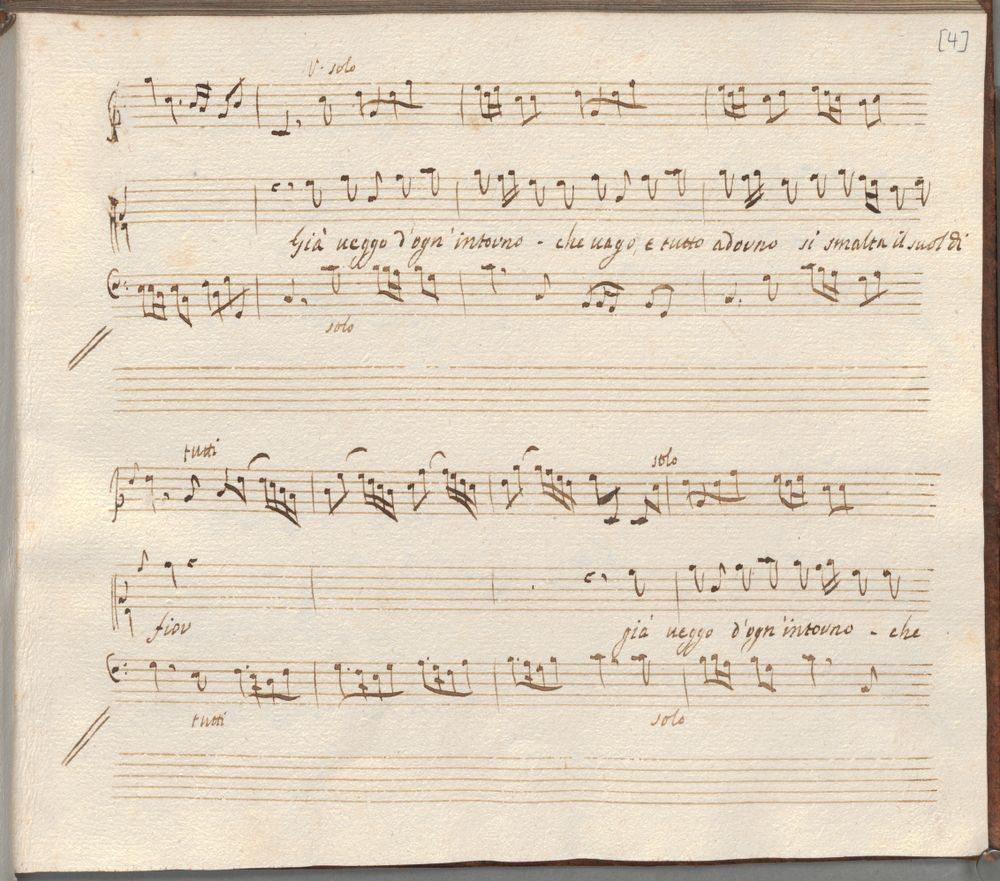 [4]
V. solo
Già veggo d'ogn'intorno - che vago, e tutto adorno si smalta il suol di
solo
tutti
solo
fior
già veggo d'ogn'intorno - che
tutti
solo